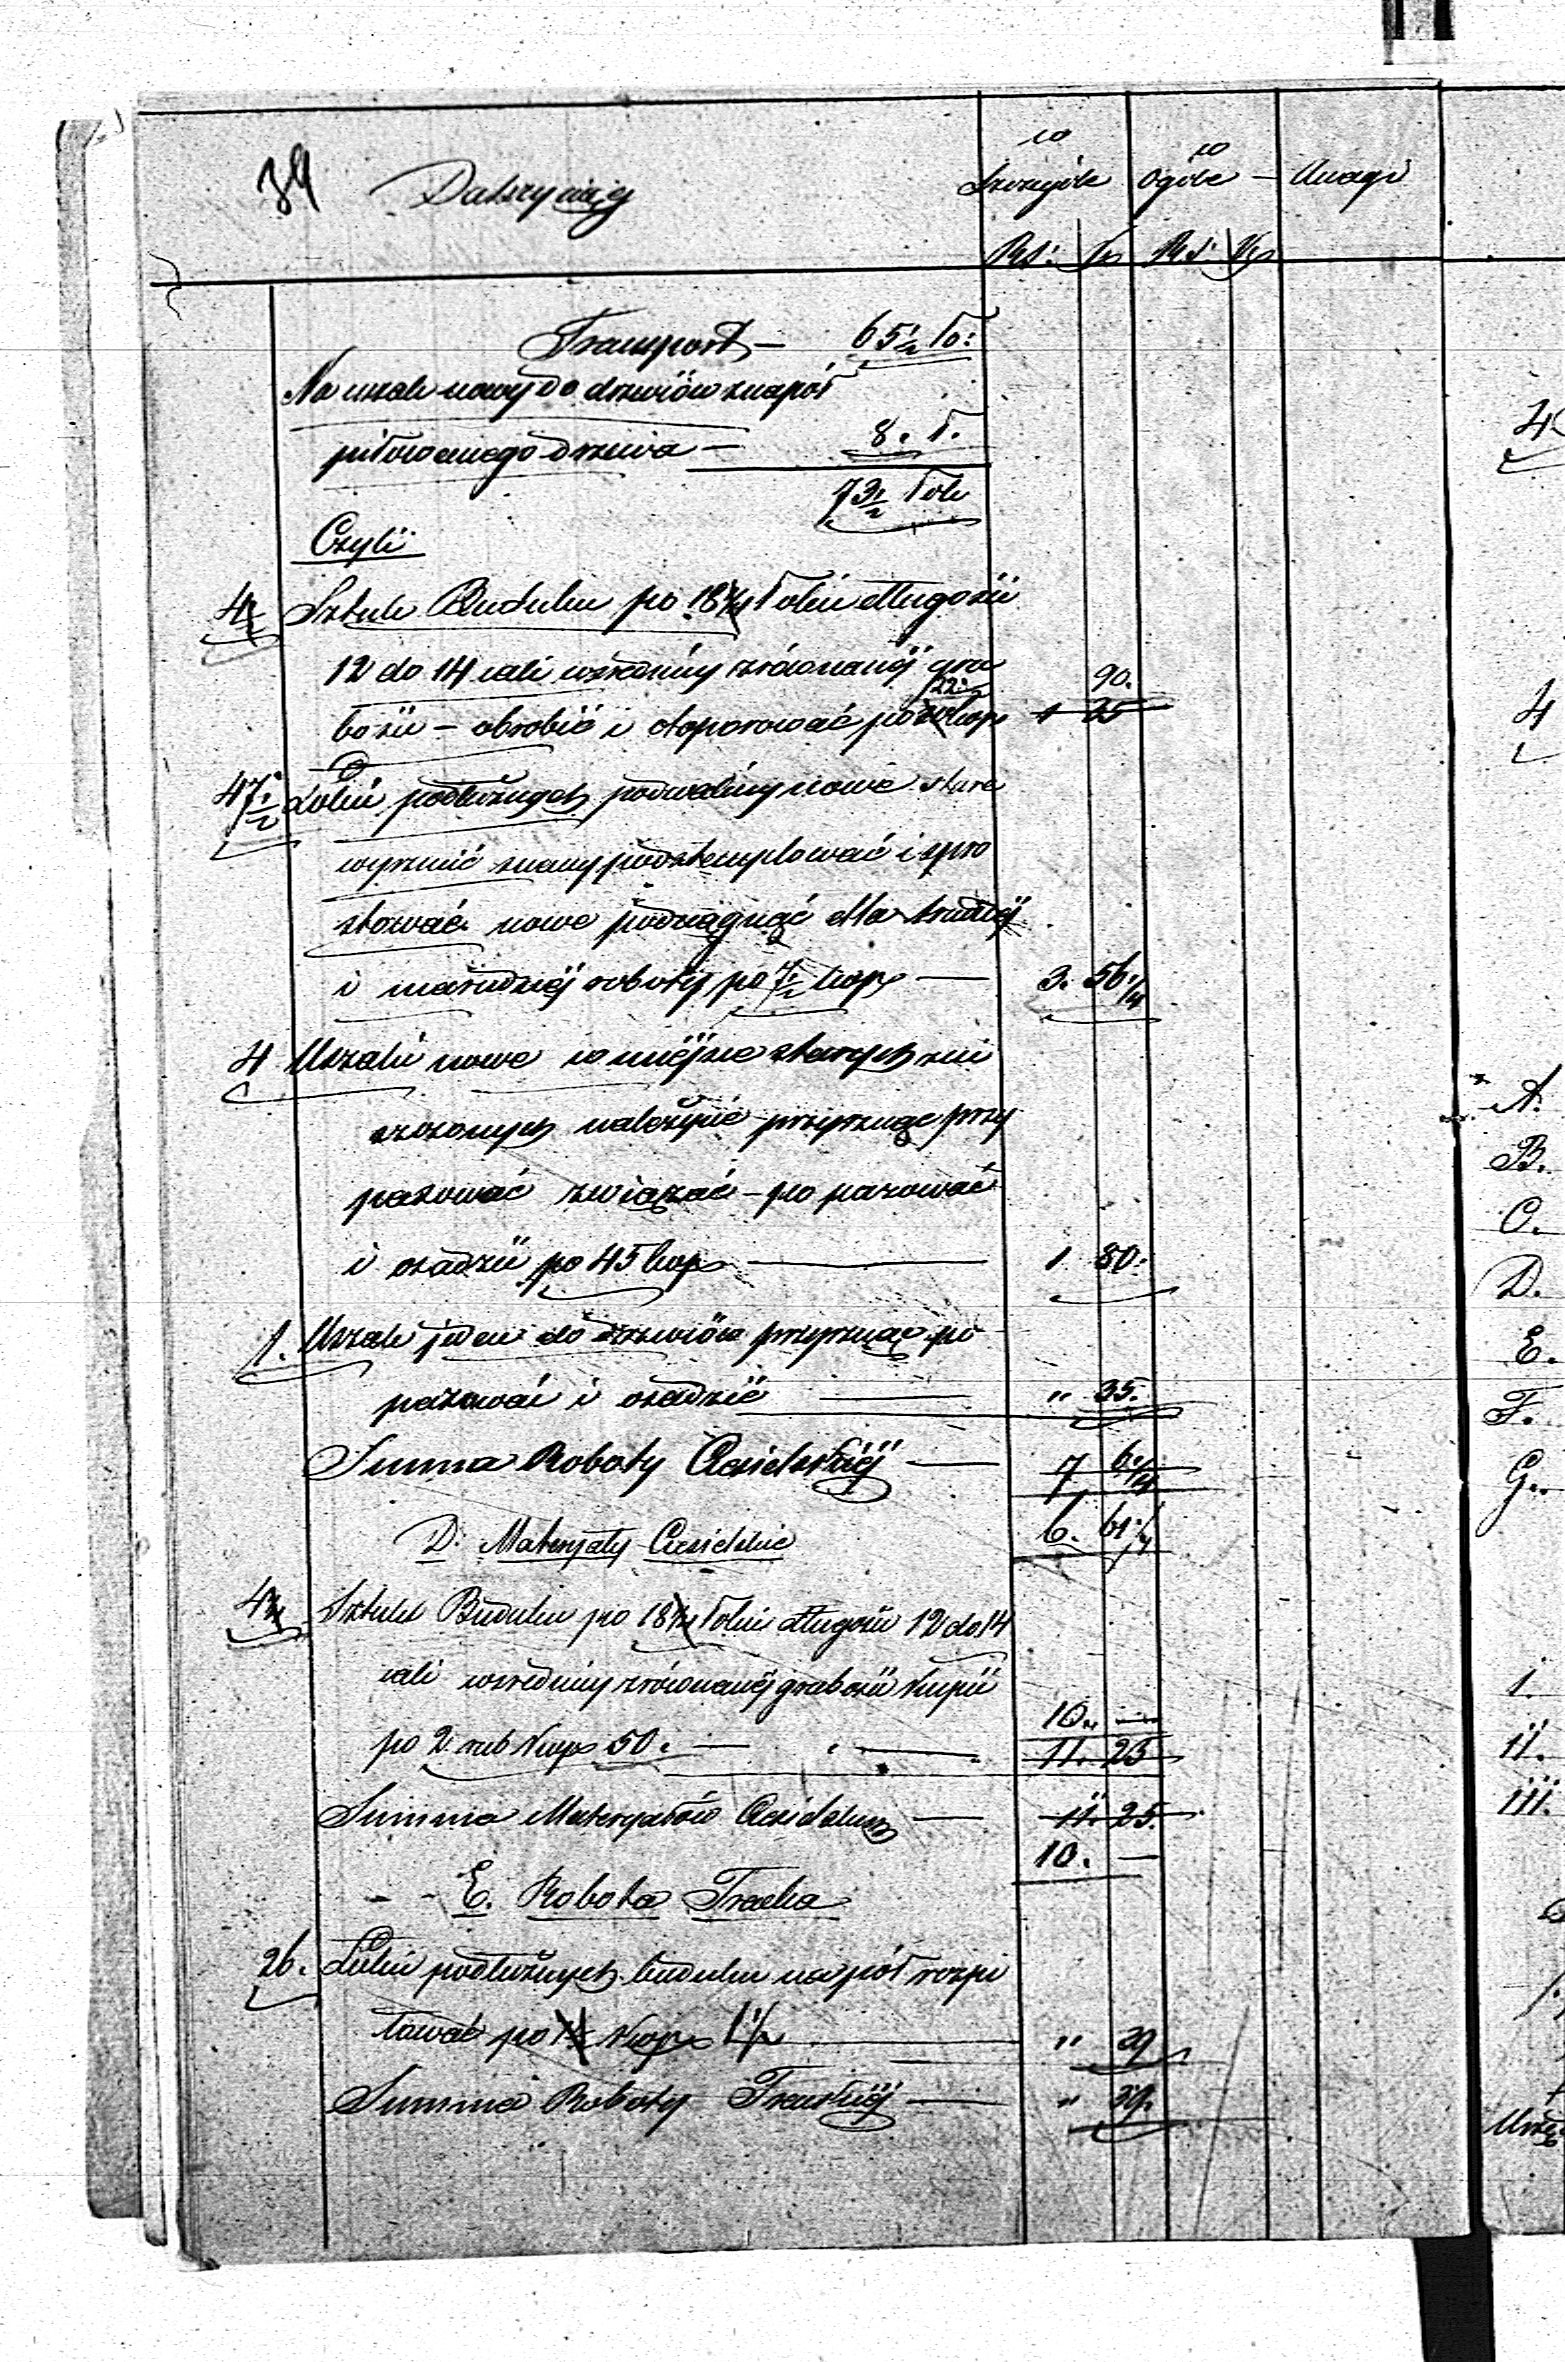 34 Dalszy ciąg
w Szczególe w Ogóle - Uwagi
Rs: k Rs: k
Transport — 65 1/2 ło:
Na uszak nowy do drzwiów z napół
piłowanego drzewa — 8. ł.
73 1/2 łok
Czyli
4 Sztuk Budulcu po 18 łokci długości
12 do 14 cali w średniny zrównanej gra
bości — obrobić i otoporować po 22 1/2 kop 90.
1 25
47 1/2 Łokci podłużnych podwaliny nowe stare
wyrznić ściany podstemplować i spro
stować nowe podciągnąć dla trudnej
i marudnej roboty po 7 1/2 kop — 3. 56 1/4
4 Uszaki nowe w miejsce starych zni
szczonych należycie przyrznąć przy
pasować związać — po pasować
i osadzić po 45 kop — 1 80.
1. Uszak jeden do drzwiów przyrznąć po
pasować i osadzić — " 35.
Summa Roboty Ciesielskiej — 7 6 1/4
D. Materyały Ciesielskie 6. 61 1/4
4 Sztuk Budulcu po 18 łokci długości 12 do 14
cali w średniny zrównanej grabości kupić
10. —
po 2 rub kop 50. — 11. 25
Summa Materyałów Ciesielskich — 11. 25.
10. —
E. Robota Tracka
26. Łokci podłużnych budulcu na pół rozpi
łować po kop 1 1/2 — " 39
Summa Roboty Trackiej — " 39.
4
4
A.
B.
C.
D.
E.
F.
G.
I.
II.
III.